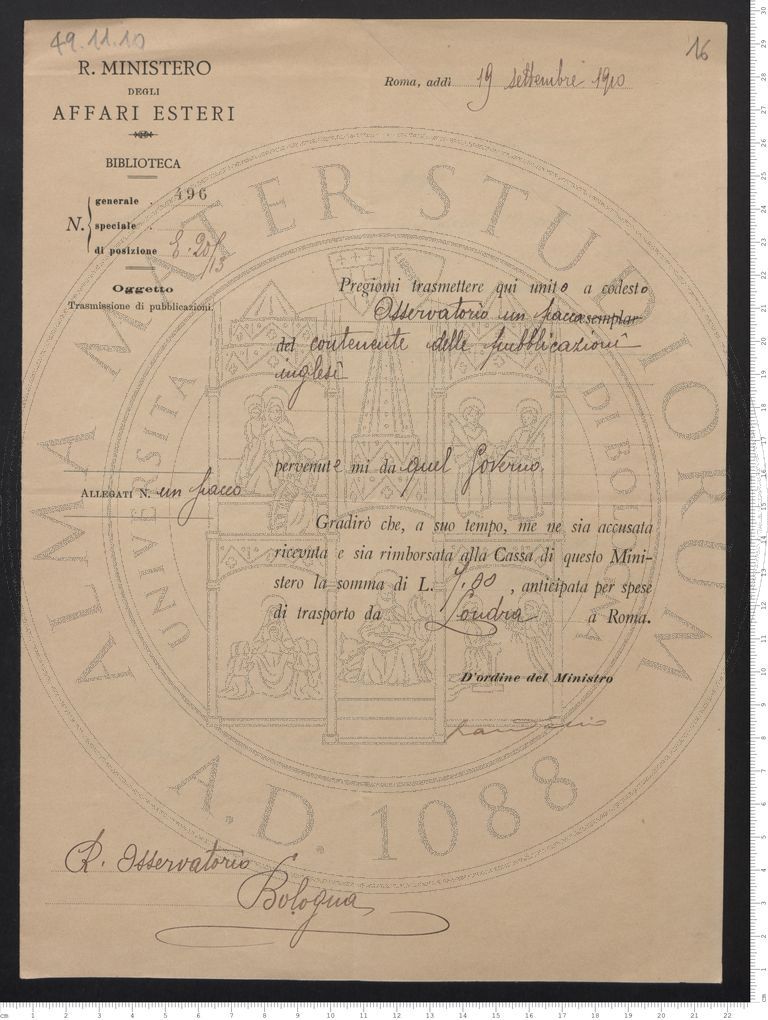 49.11.10
16
R. MINISTERO
DEGLI
AFFARI ESTERI
BIBLIOTECA
Roma, addì 19 settembre 1910
N.
generale . 496
speciale .
di posizione E. 20/13
Oggetto
Trasmissione di pubblicazioni.
Pregiomi trasmettere qui unito a codesto
Osservatorio un pacco semplar
del contenente delle pubblicazioni
inglesi
pervenute mi da quel Governo.
ALLEGATI N. un pacco
Gradirò che, a suo tempo, me ne sia accusata
ricevuta e sia rimborsata alla Cassa di questo Mini-
stero la somma di L. 7.00, anticipata per spese
di trasporto da Londra a Roma.
D'ordine del Ministro
R. Osservatorio
Bologna
ALMA MATER STUDIORUM
UNIVERSITA DI BOLOGNA
A.D. 1088